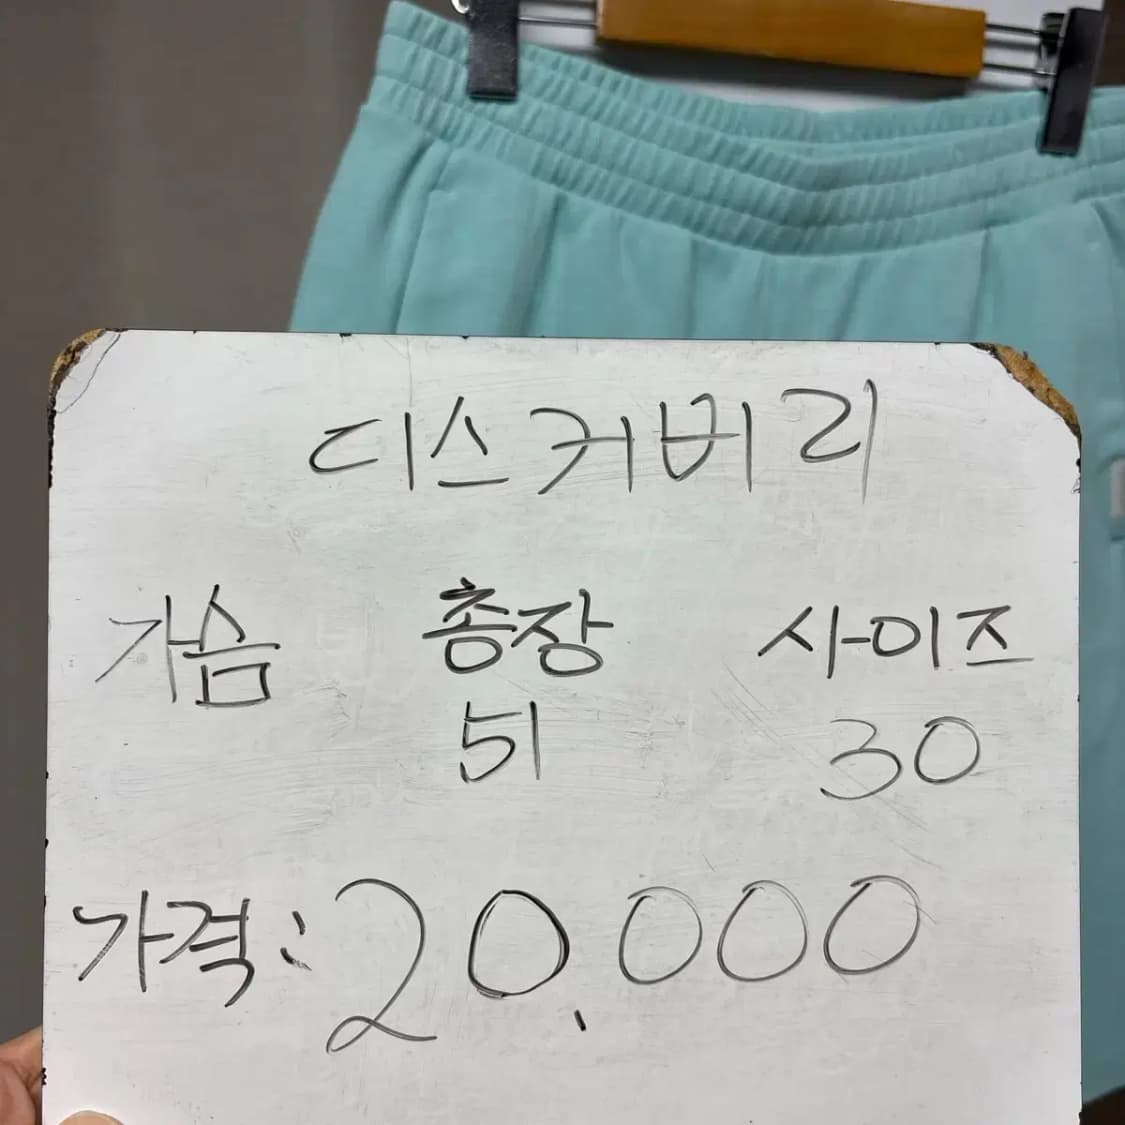 디스커버리
가슴 총장 사이즈
51 30
가격: 20,000